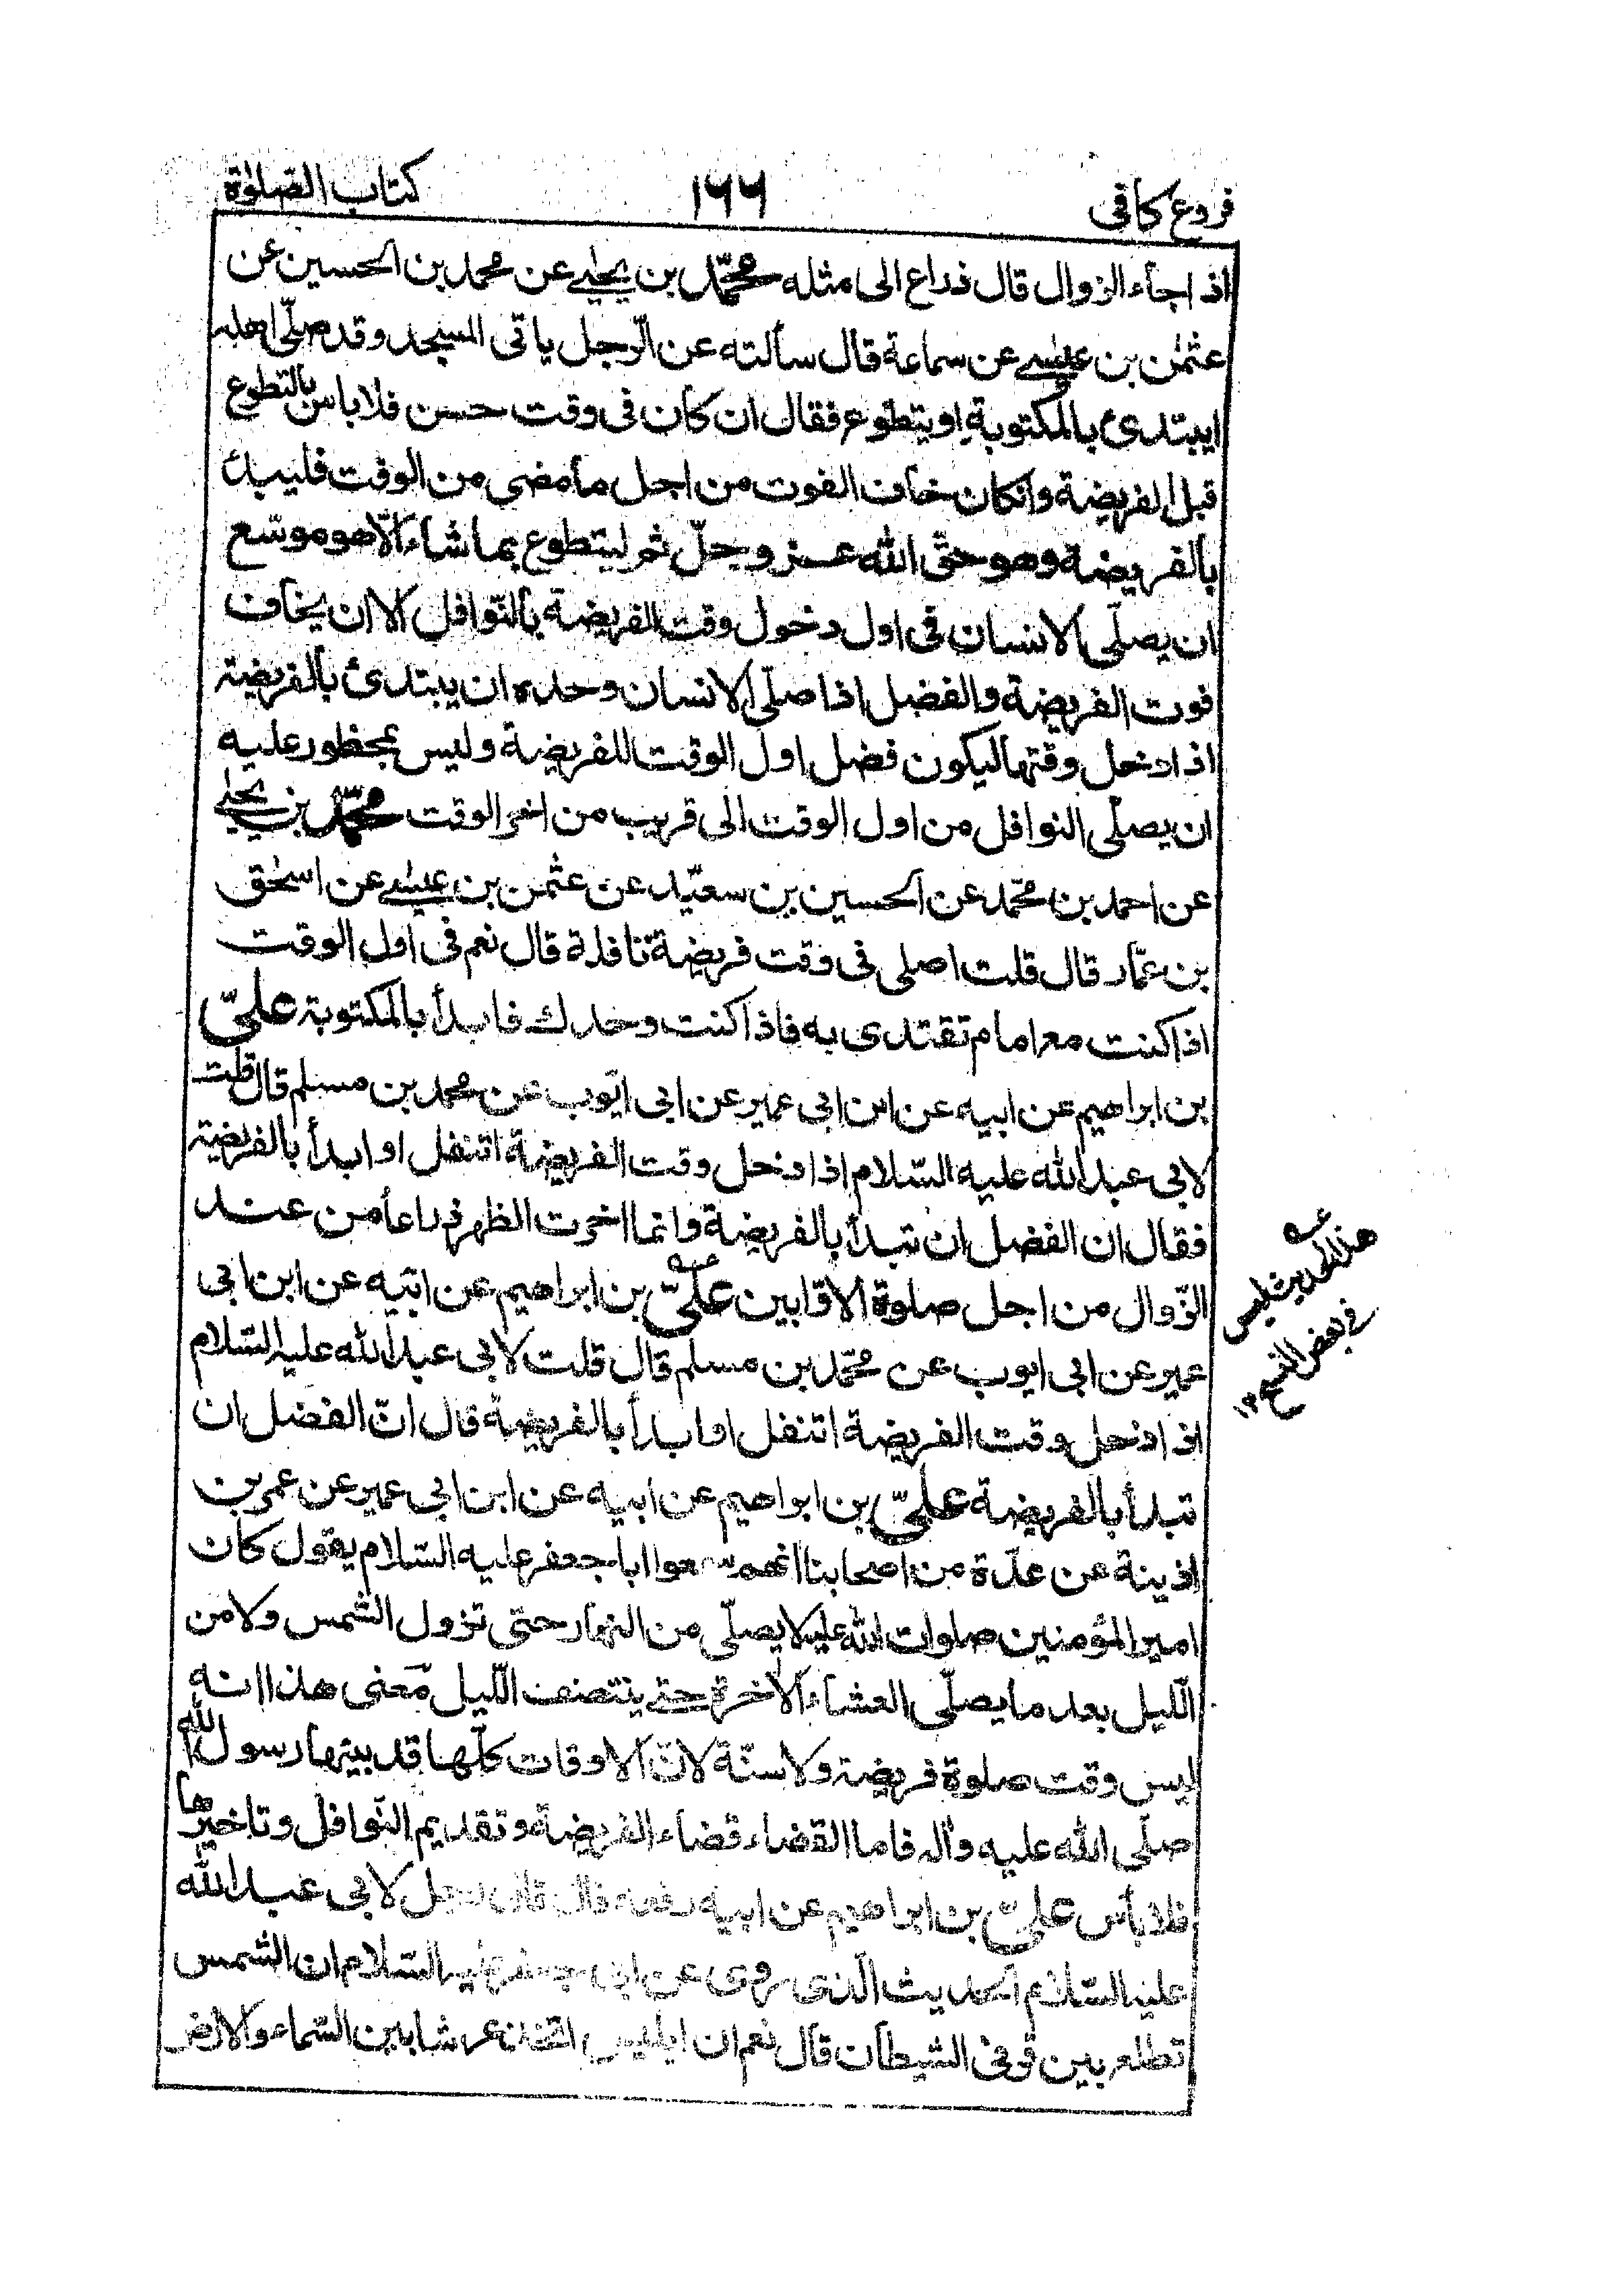 فروع كافى ۱۶۶ كتاب الصلوٰة
اذا جاء الزوال قال ذراع الى مثله محمّد بن يحيى عن محمد بن الحسين عن
عثمٰن بن عيسى عن سماعة قال سألته عن الرّجل ياتى المسجد وقد صلّى اهله
ايبتدئ بالمكتوبة او يتطوع فقال ان كان فى وقت حسن فلا باس بالتطوع
قبل الفريضة وانكان خاف الفوت من اجل ما مضى من الوقت فليبدأ
بالفريضة وهو حقّ الله عز وجلّ ثم ليتطوع بما شاء الّا هو موسّع
ان يصلّى الانسان فى اول دخول وقت الفريضة بالنّوافل الا ان يخاف
فوت الفريضة والفضل اذا صلّى الانسان وحده ان يبتدئ بالفريضة
اذا دخل وقتها ليكون فضل اول الوقت للفريضة وليس بمحظور عليه
ان يصلّى النوافل من اول الوقت الى قريب من اخر الوقت محمّد بن يحيى
عن احمد بن محمّد عن الحسين بن سعيد عن عثمٰن بن عيسى عن اسحٰق
بن عمّار قال قلت اصلى فى وقت فريضة نافلة قال نعم فى اول الوقت
اذا كنت مع امام تقتدى به فاذا كنت وحدك فابدأ بالمكتوبة علىّ
بن ابراهيم عن ابيه عن ابن ابى عمير عن ابى ايّوب عن محمد بن مسلم قال قلت
لابى عبد الله عليه السّلام اذا دخل وقت الفريضة اتنفل او ابدأ بالفريضة
فقال ان الفضل ان تبدأ بالفريضة وانما اخرت الظهر ذراعا من عند
الزّوال من اجل صلوة الاوّابين علىّ بن ابراهيم عن ابيه عن ابن ابى
عمير عن ابى ايوب عن محمّد بن مسلم قال قلت لابى عبد الله عليه السّلام
اذا دخل وقت الفريضة اتنفل او ابدأ بالفريضة قال انّ الفضل ان
تبدأ بالفريضة علىّ بن ابراهيم عن ابيه عن ابن ابى عمير عن عمر بن
اذينة عن عدّة من اصحابنا انهم سمعوا ابا جعفر عليه السّلام يقول كان
امير المؤمنين صلوات الله عليه لا يصلّى من النهار حتى تزول الشمس ولا من
الّليل بعد ما يصلّى العشاء الاخرة حتى ينتصف الّليل معنى هذا انه
ليس وقت صلوة فريضة ولا سنّة لانّ الاوقات كلّها قد بيّنها رسول الله
صلّى الله عليه وآله فاما القضاء قضاء الفريضة وتقديم النّوافل وتاخيرها
فلا بأس علىّ بن ابراهيم عن ابيه رفعه قال قال رجل لابى عبد الله
عليه السّلام الحديث الّذى روى عن ابى جعفر عليه السّلام ان الشمس
تطلع بين قرنى الشيطان قال نعم ان ابليس اتخذ عرشا بين السّماء والارض
هذا الحديث ليس
فى بعض النسخ ۱۲